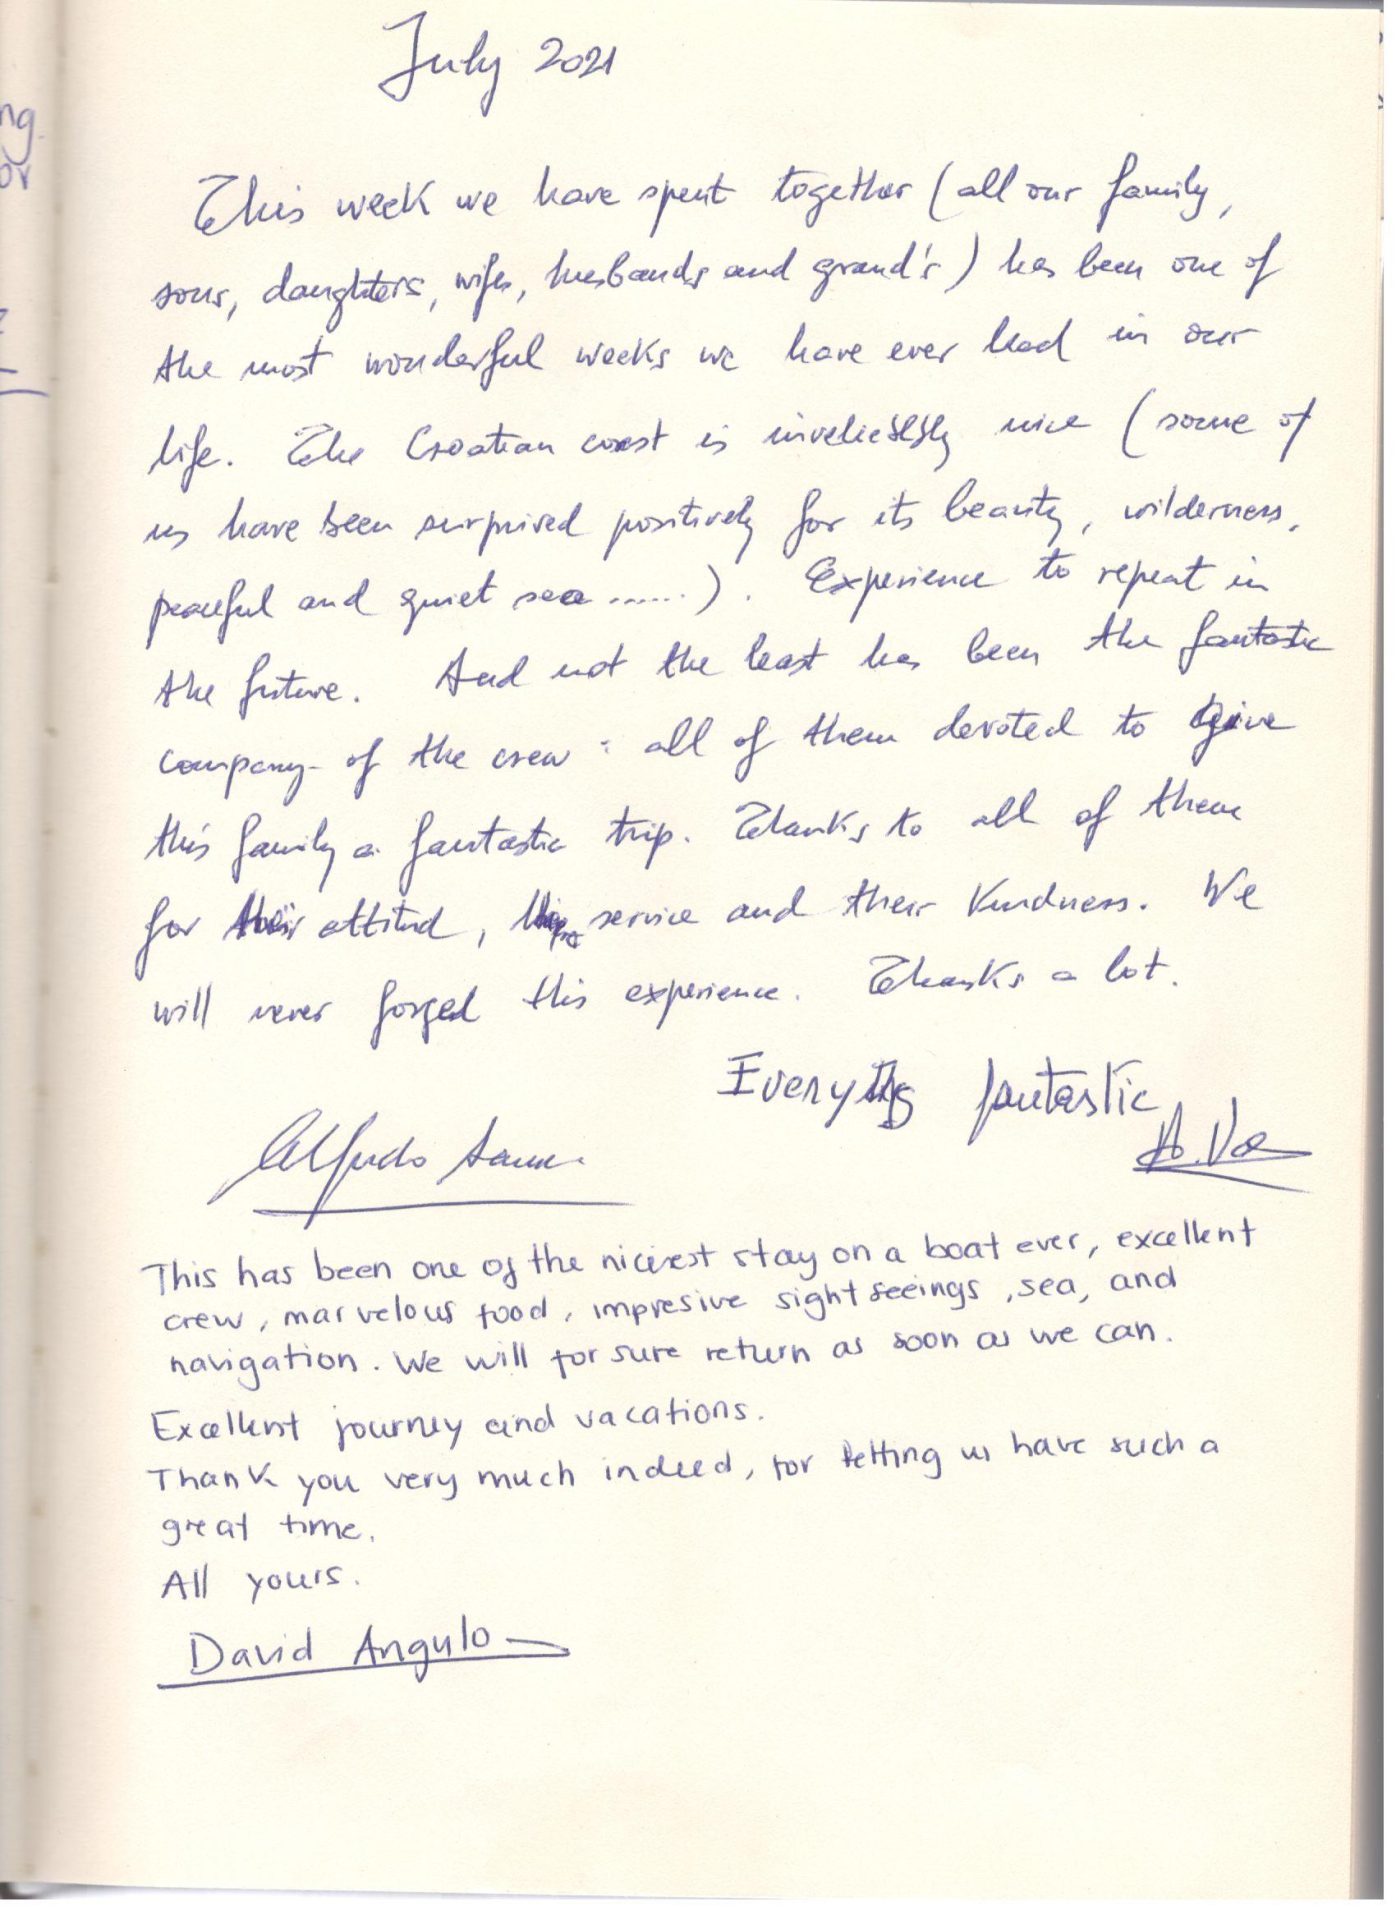 July 2021
This week we have spent together (all our family,
sons, daughters, wifes, husbands and grand's) has been one of
the most wonderful weeks we have ever had in our
life. The Croatian coast is nice (some of
us have been surprised positively for its beauty, wilderness,
peaceful and quiet sea ......). Experience to repeat in
the future. And not the least has been the fantastic
company of the crew: all of them devoted to give
this family a fantastic trip. Thanks to all of them
for their attitud, service and their kindness. We
will never forged this experience. Thanks a lot.
fantastic
Alfredo
This has been one of the stay on a boat ever, excellent
crew, marvelous food, impresive sightseeings, sea, and
navigation. We will for sure return as soon as we can.
Excellent journey and vacations.
Thank you very much indeed, for letting us have such a
great time.
All yours.
David Angulo
ng.
or